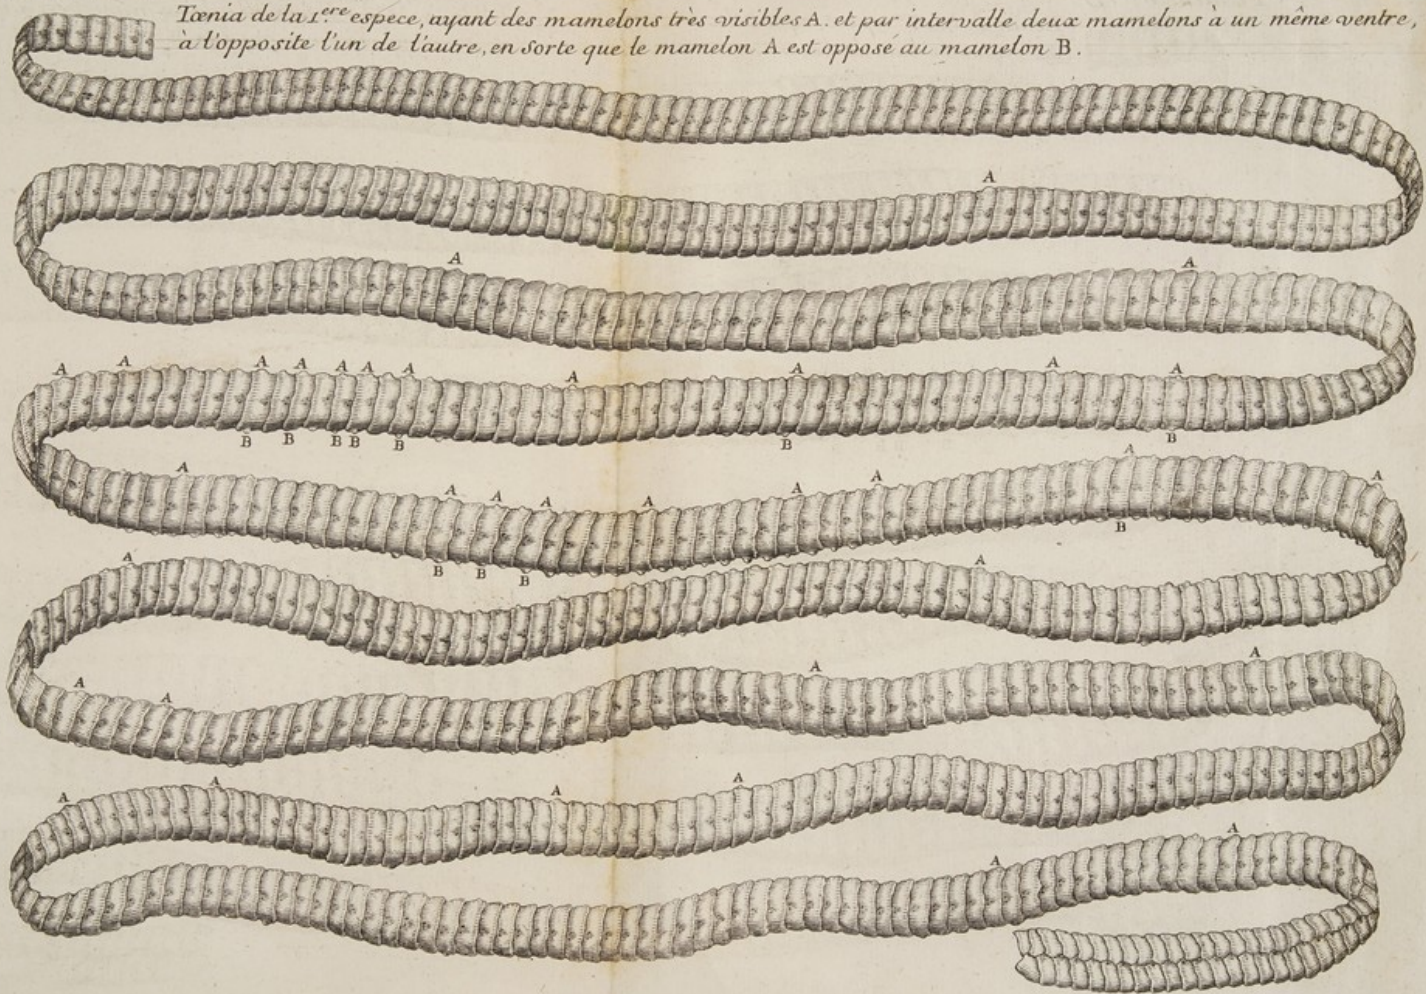 Tœnia de la 1.ere espece, ayant des mamelons très visibles A. et par intervalle deux mamelons à un même ventre,
à l'opposite l'un de l'autre, en sorte que le mamelon A est opposé au mamelon B.
A
A A
A A A A A A A A A A A
B B B B B B B
A A A A A A A A A
B B B B
A A
A A A A
A A A A
A A